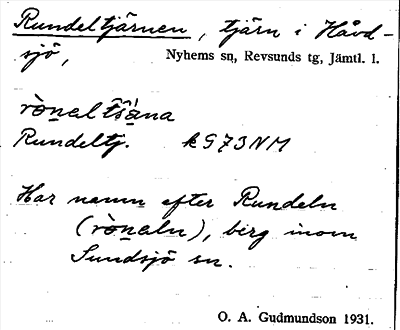 Rundeltjärnen, tjärn i Håvd-
sjö, Nyhems sn, Revsunds tg, Jämtl. l.
Rundeltj. k 973 NM
Har namn efter Rundeln
(rònaln), berg inom
Sundsjö sn.
O. A. Gudmundson 1931.